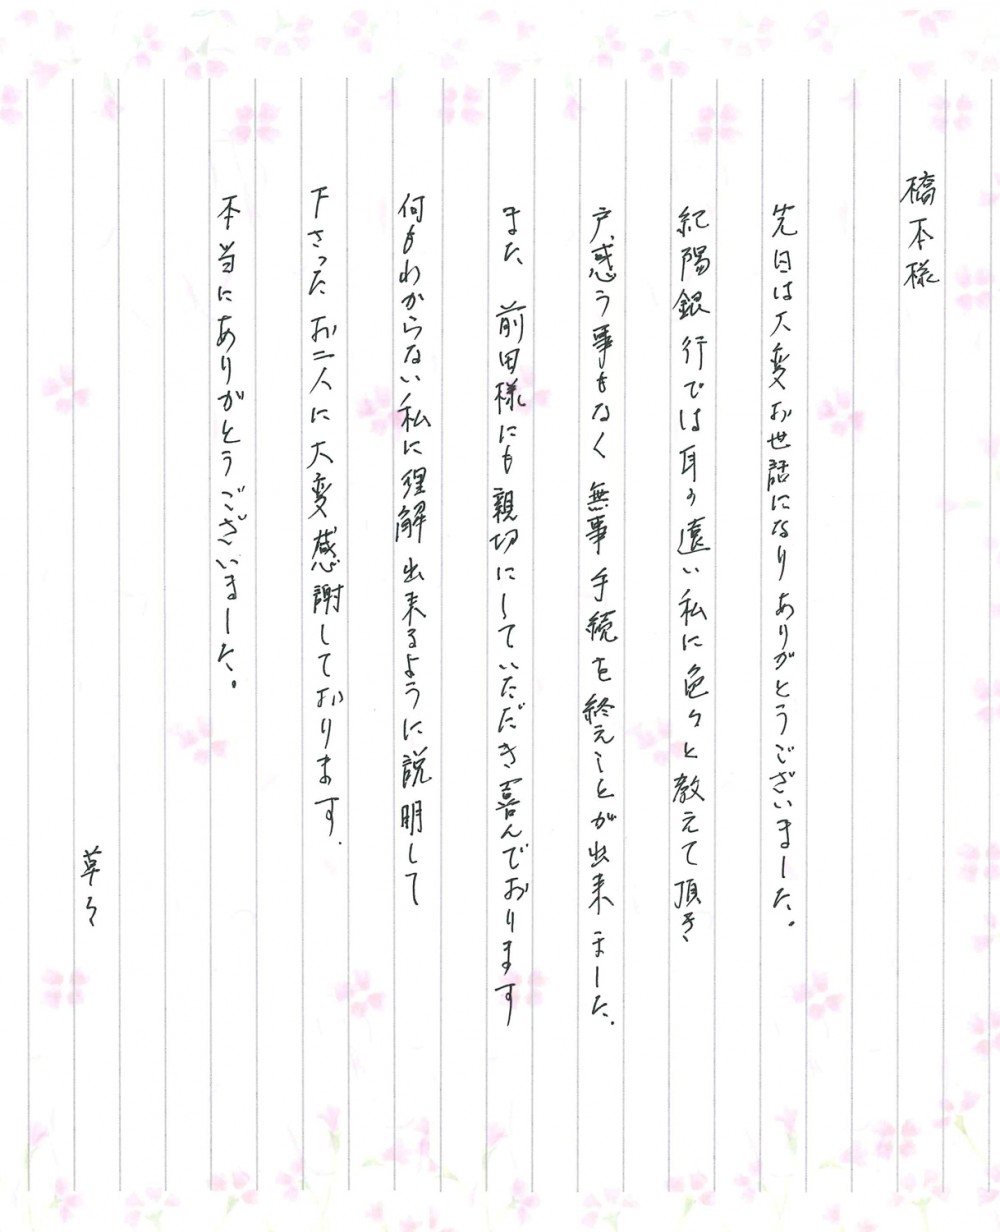 橋本様
先日は大変お世話になりありがとうございました。
紀陽銀行では耳の遠い私に色々と教えて頂き
戸惑う事もなく無事手続を終えことが出来ました。
また、前田様にも親切にしていただき喜んでおります
何もわからない私に理解出来るように説明して
下さったお二人に大変感謝しております.
本当にありがとうございました。
草々